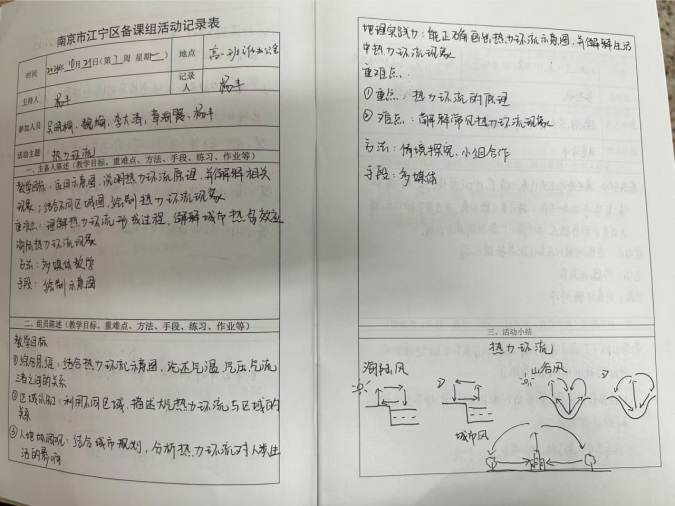 南京市江宁区备课组活动记录表
时间 2024年10月21日(第 周 星期一) 地点 高一 办公室
主持人 杨丰 记录人 杨丰
参加人员 杨丰
活动主题 热力环流
一、主备人陈述(教学目标、重难点、方法、手段、练习、作业等)
教学目标:运用示意图,说明热力环流原理,并解释相关
现象;结合不同区域图,绘制热力环流现象
重难点:理解热力环流形成过程,解释城市热岛效应
海陆热力环流现象
方法:多媒体教学
手段:绘制示意图
二、组员陈述(教学目标、重难点、方法、手段、练习、作业等)
教学目标
①综合思维:结合热力环流示意图,论述气温、气压、气流
三者之间的关系
②区域认知:利用不同区域,描述大气热力环流与区域的
关系
③人地协调观:结合城市规划,分析热力环流对人类生
活的影响
地理实践力:能正确画出热力环流示意图,并解释生活
中热力环流现象
重难点:
①重点:热力环流的原理
②难点:解释常见热力环流现象
方法:情境探究、小组合作
手段:多媒体
三、活动小结
热力环流
海陆风
山谷风
城市风